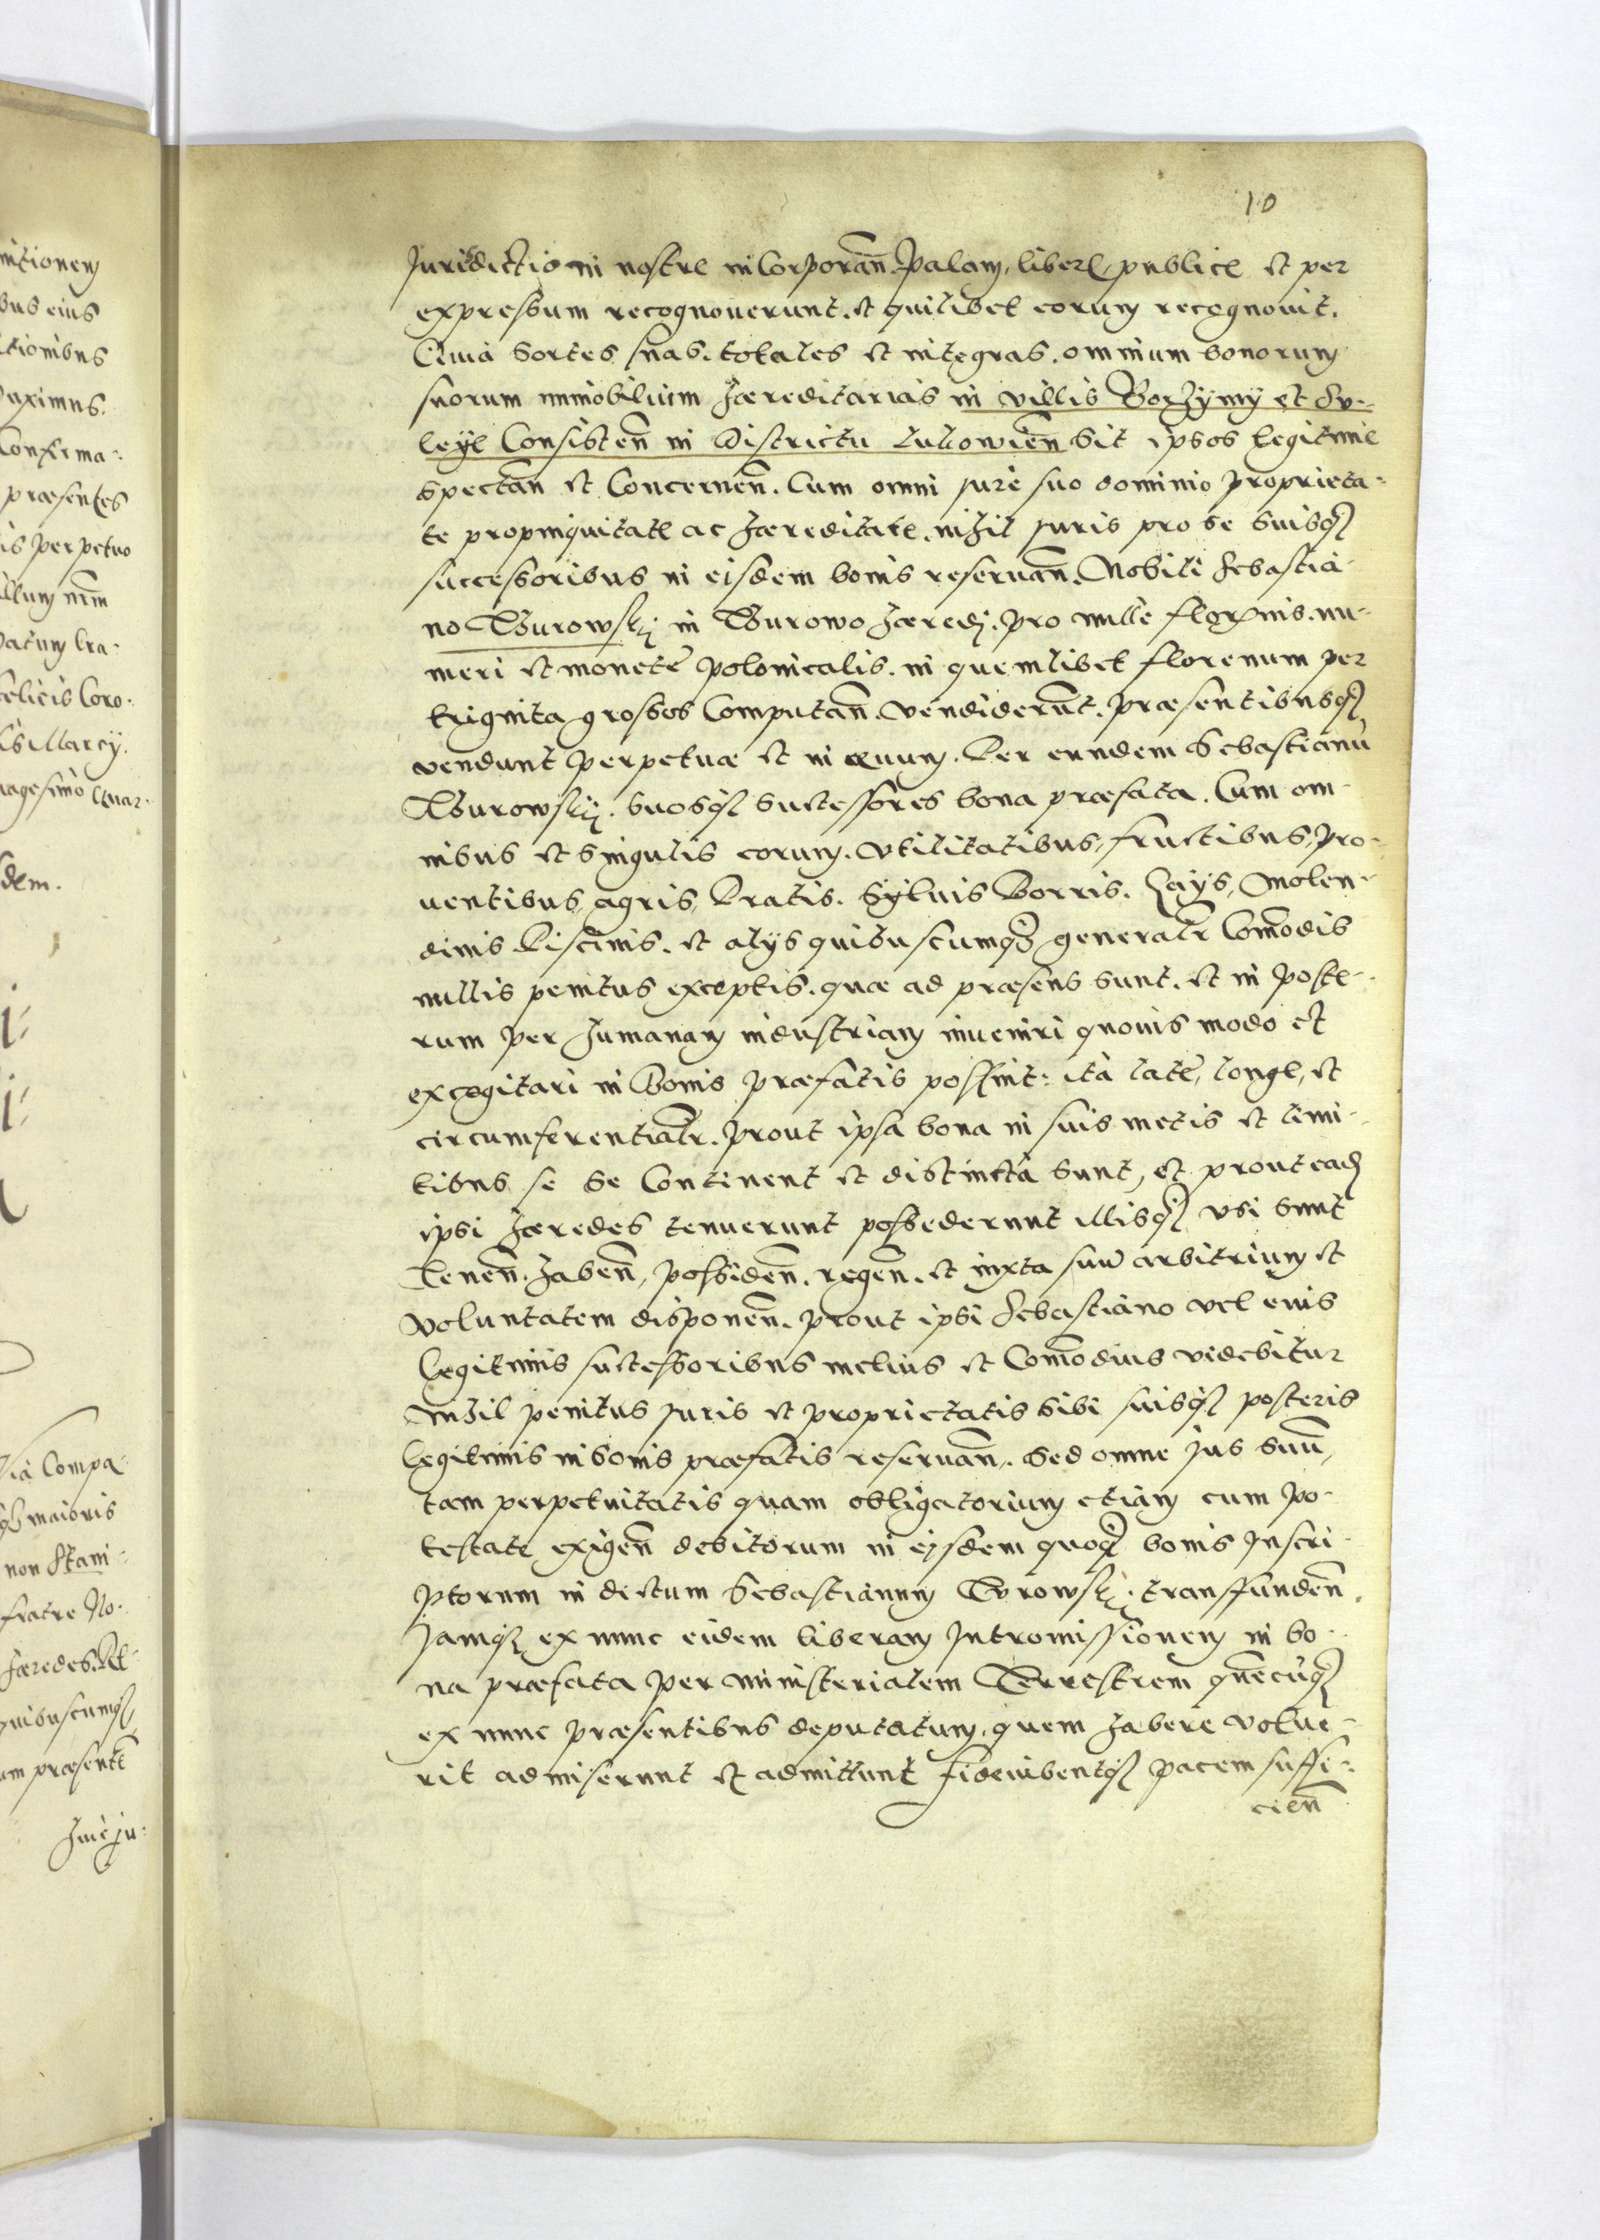 10
Jurisdictioni nostre incorporan̄. Palam, libere, publice et per
expressum recognoverunt. et quilibet eorum recognovit.
Quia Sortes suas. totales et integras. omnium bonorum
suorum immobilium haereditarias in villis Borzymy et
leye Consisten̄ in Districtu Lukowien̄ Sit ipsos legitime
spectan̄ et Concernen̄. Cum omni jure suo dominio proprieta-
te propinquitate ac haereditate. nihil juris pro se suisq3
successoribus in eisdem bonis reservan̄. Nobili Sebastia-
no Turowskij in Turowo haeredi. pro mille florenis. nu-
meri et monete polonicalis. in quemlibet florenum per
triginta grossos Computan̄. vendiderūt. praesentibusq3
vendunt perpetuae et in aevum. Per eundem Sebastianū
Turowskij. Suosq3 Successores bona praefata. Cum om-
nibus et singulis eorum. utilitatibus, fructibus, pro-
uentibus, agris, Pratis. Sylvis Borris. Molen-
dinis Piscinis. et alijs quibuscumq3 generalr̄ Com̄odis
nullis penitus exceptis. quae ad praesens sunt. et in poste-
rum per humanam industriam inveniri quovis modo et
excogitari in Bonis praefatis possint: ita late, longe, et
circumferentialr̄. prout ipsa bona in suis metis et limi-
tibus se se Continent et distincta sunt, et prout eadē
ipsi haeredes tenuerunt possederunt illisq3 usi sunt
Tenen̄. haben̄, possiden̄. regen̄. et iuxta suū arbitrium et
voluntatem disponen̄. prout ipsi Sebastiano vel eius
legitimis successoribus melius et Com̄odius videbitur
nihil penitus juris et proprietatis sibi suisq3 posteris
legitimis in bonis praefatis reservan̄. Sed omne jus suū,
tam perpetuitatis quam obligatorium etiam cum po-
testate exigen̄ debitorum in eisdem quoq3 bonis Inscri-
ptorum in dictum Sebastianum Turowskij. transfunden̄.
Jamq3 ex nunc eidem liberam Intromissionem in bo-
na praefata per ministerialem Terrestrem quēcūq3
ex nunc praesentibus deputatum. quem habere volue-
rit admiserunt et admittunt Fideiubentq3 pacem suffi-
cien̄